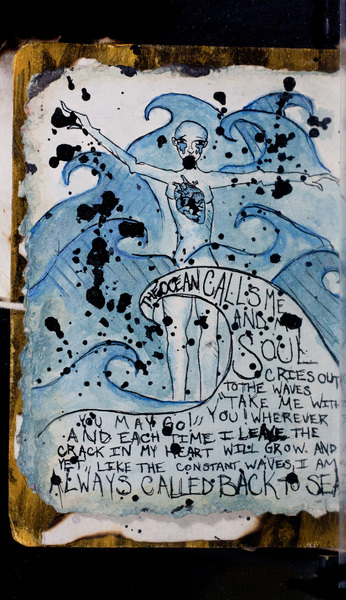 THE OCEAN CALLS ME
AND MY
SOUL
CRIES OUT
TO THE WAVES
"TAKE ME WITH
YOU! WHEREVER
YOU MAY GO!"
AND EACH TIME I LEAVE THE
CRACK IN MY HEART WILL GROW. AND
YET LIKE THE CONSTANT WAVES, I AM
ALWAYS CALLED BACK TO SEA